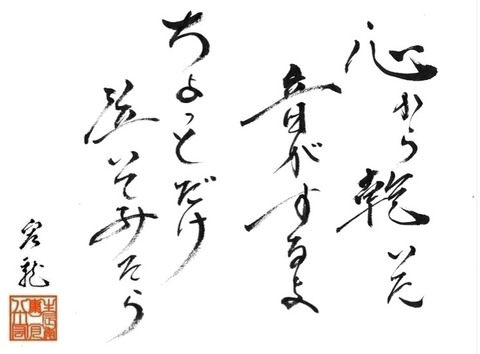 心から乾いた
音がするよ
ちょっとだけ
泣いてみたら